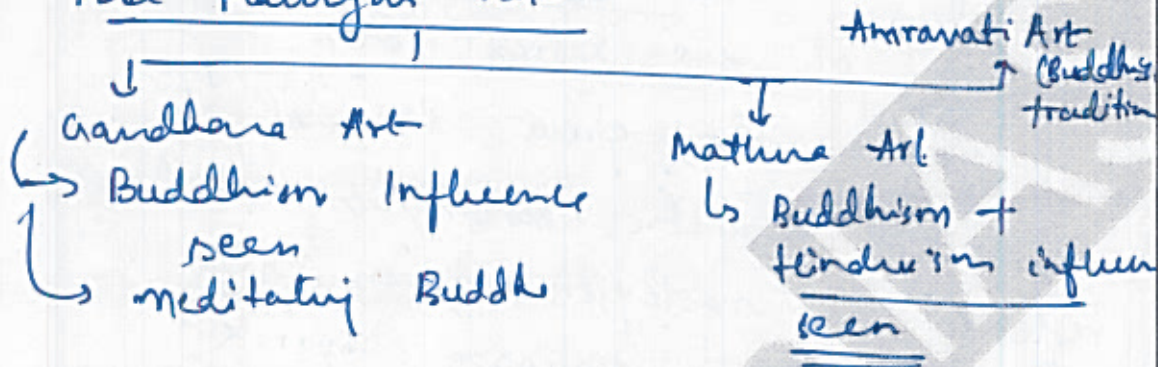 Art
Amravati Art
(Buddhis
tradition
Gandhara Art
Buddhism Influence
seen
meditating Buddh
Mathura Art
Buddhism +
Hinduism influen
seen